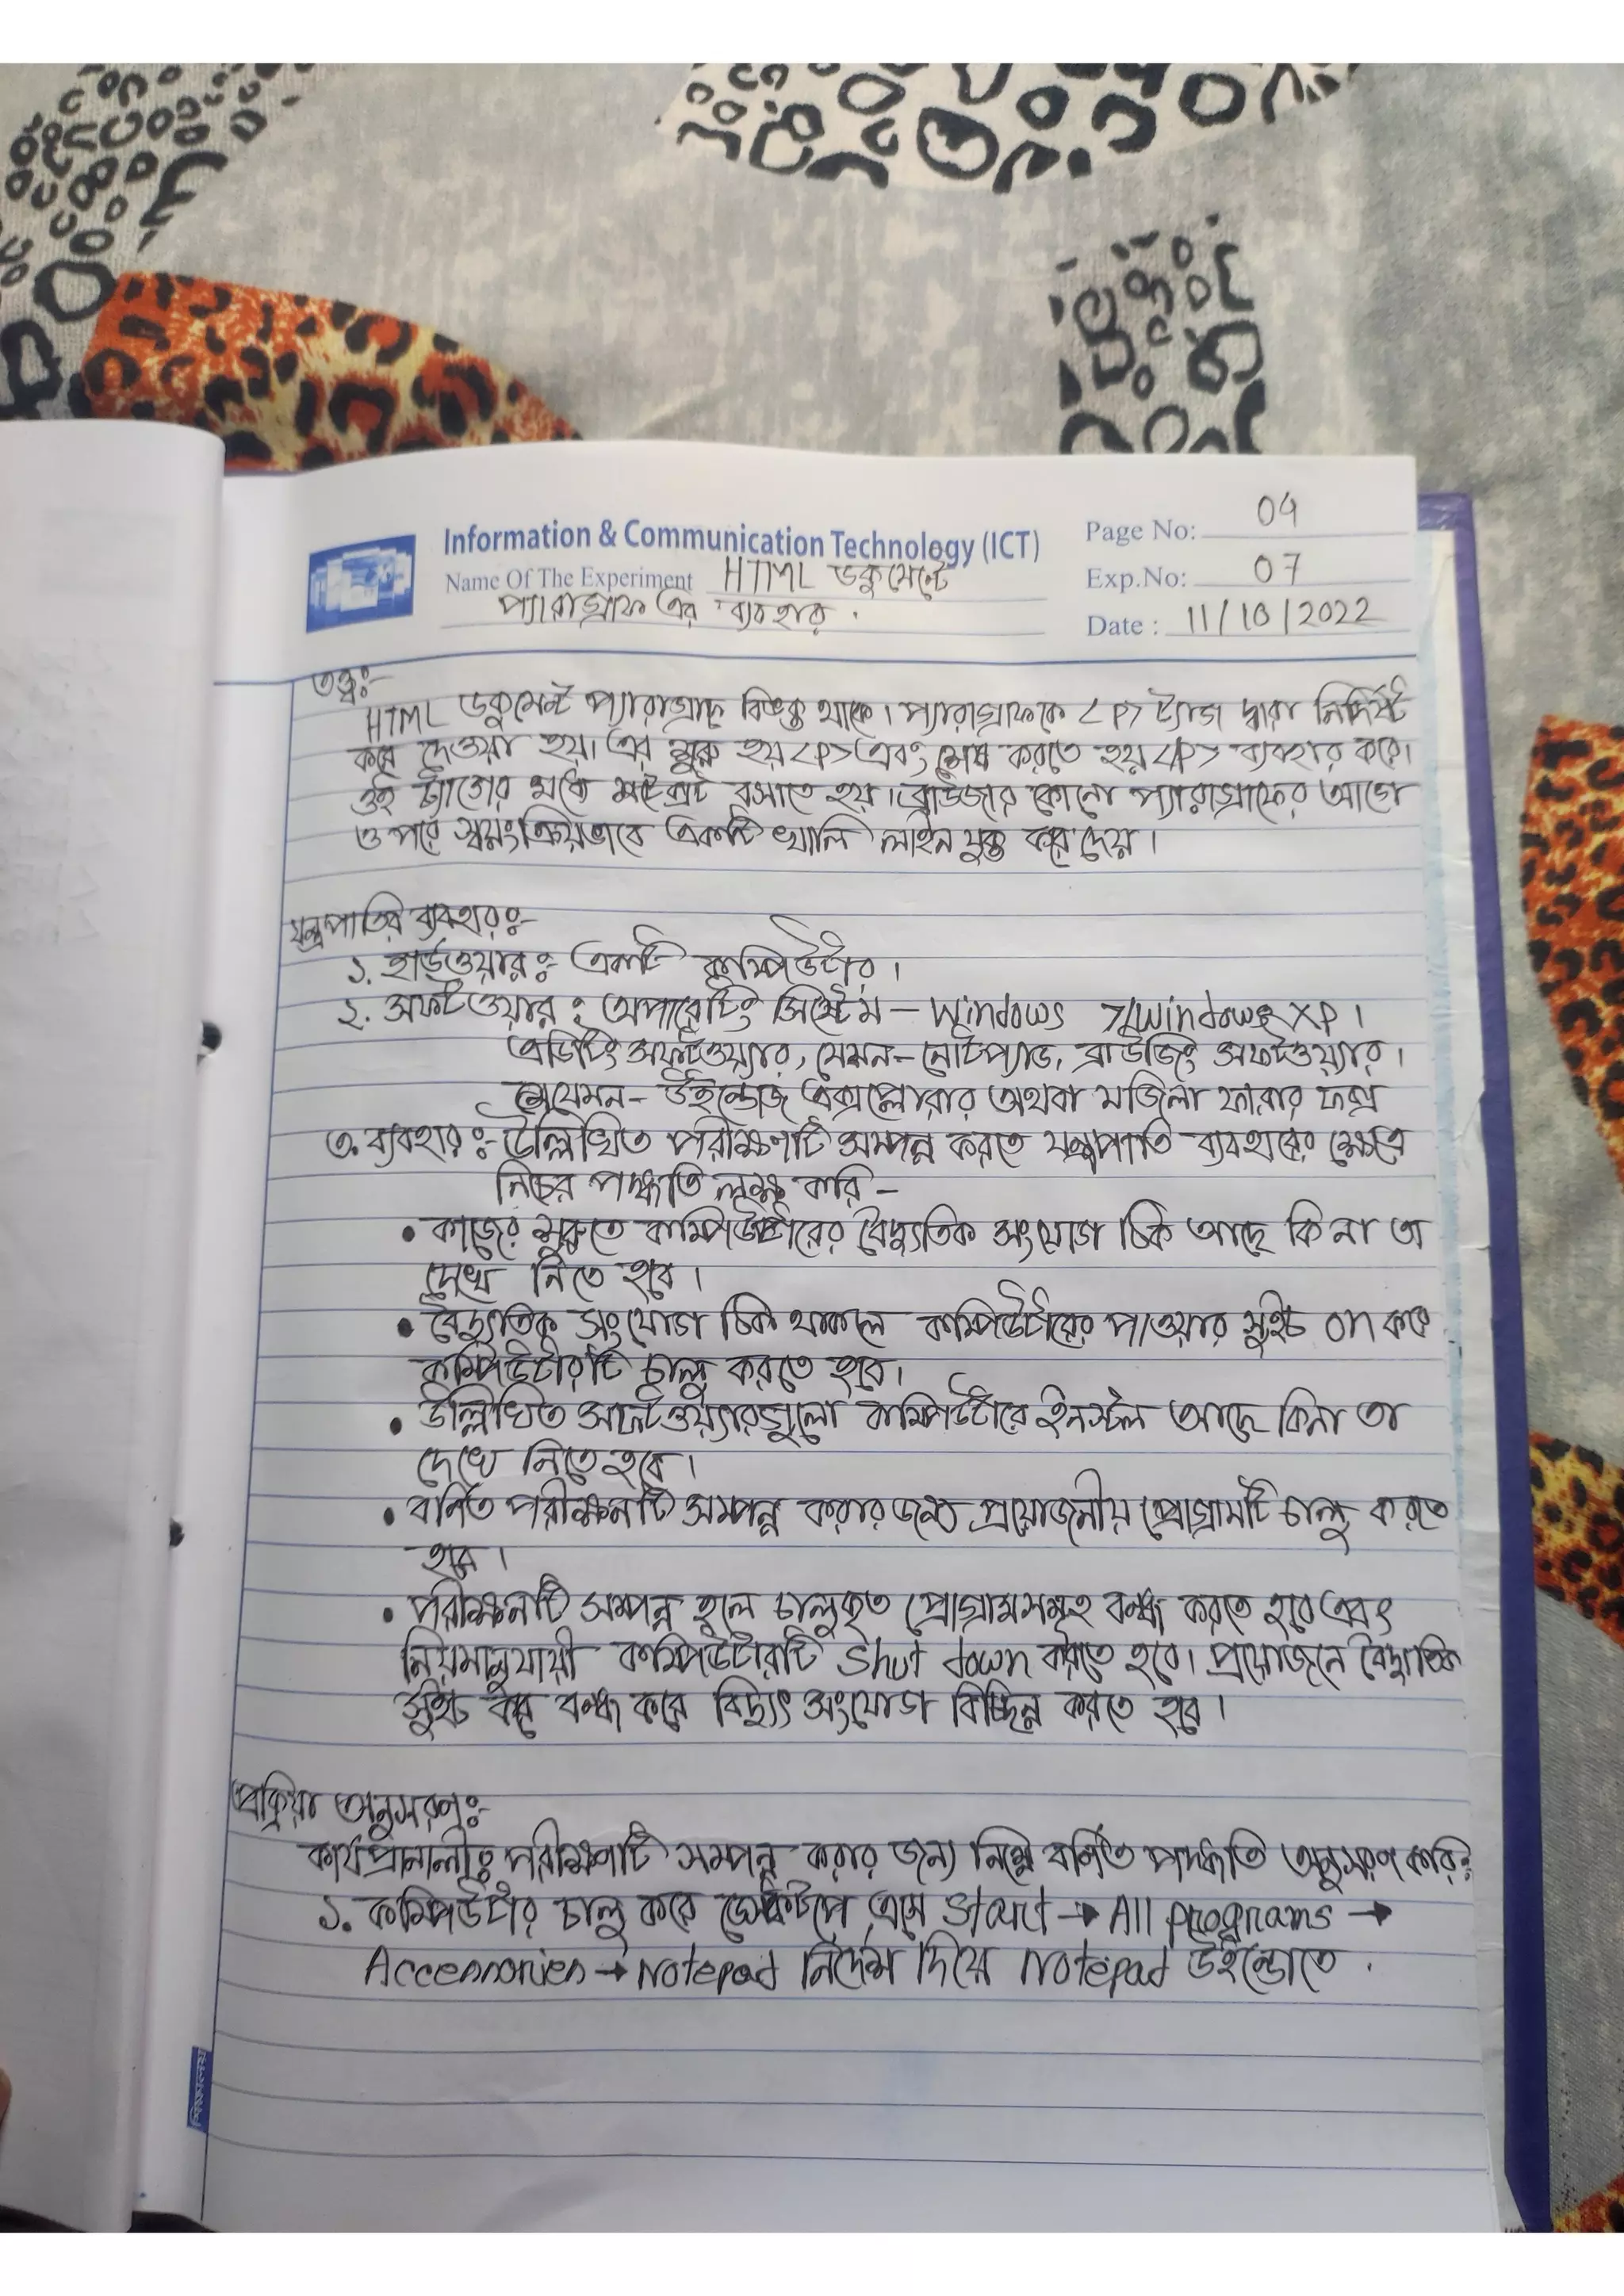 Information & Communication Technology (ICT)
Page No: 04
Name Of The Experiment HTML ডকুমেন্টে
Exp.No: 07
প্যারাগ্রাফ এর ব্যবহার.
Date : 11/10/2022
তত্ত্বঃ-
HTML ডকুমেন্ট প্যারাগ্রাফে বিভক্ত থাকে। প্যারাগ্রাফকে <P> ট্যাগ দ্বারা নির্দিষ্ট
করে দেওয়া হয়। এর শুরু হয় <P> এবং শেষ করতে হয় <P> ব্যবহার করে।
ওই ট্যাগের মধ্যে বসাতে হয়। ব্রাউজার কোনো প্যারাগ্রাফের আগে
ও পরে স্বয়ংক্রিয়ভাবে একটি খালি লাইন যুক্ত করে দেয়।
যন্ত্রপাতির ব্যবহারঃ-
১. হার্ডওয়ারঃ- একটি কম্পিউটার।
২. সফটওয়ার: অপারেটিং সিস্টেম - Windows 7/Windows XP।
এডিটিং সফটওয়্যার, যেমন- নোটপ্যাড, ব্রাউজিং সফটওয়্যার।
যেমন- উইন্ডোজ এক্সপ্লোরার অথবা মজিলা ফায়ার ফক্স
৩. ব্যবহারঃ- উল্লিখিত পরীক্ষণটি সম্পন্ন করতে যন্ত্রপাতি ব্যবহারের ক্ষেত্রে
নিচের পদ্ধতি লক্ষ্য করি -
• কাজের শুরুতে কম্পিউটারের বৈদ্যুতিক সংযোগ ঠিক আছে কি না তা
দেখে নিতে হবে।
• বৈদ্যুতিক সংযোগ ঠিক থাকলে কম্পিউটারের পাওয়ার সুইচ on করে
কম্পিউটারটি চালু করতে হবে।
• উল্লিখিত সফটওয়্যারগুলো কম্পিউটারে ইনস্টল আছে কিনা তা
দেখে নিতে হবে।
• বর্ণিত পরীক্ষনটি সম্পন্ন করার জন্য প্রয়োজনীয় প্রোগ্রামটি চালু করতে
হবে।
• পরীক্ষনটি সম্পন্ন হলে চালুকৃত প্রোগ্রামসমূহ বন্ধ করতে হবে এবং
নিয়মানুযায়ী কম্পিউটারটি Shut down করতে হবে। প্রয়োজনে বৈদ্যুতিক
সুইচ বন্ধ করে বিদ্যুৎ সংযোগ বিচ্ছিন্ন করতে হবে।
প্রক্রিয়া অনুসরণঃ-
কার্যপ্রনালীঃ পরীক্ষণটি সম্পন্ন করার জন্য নিম্নে বর্ণিত পদ্ধতি অনুসরণ করি:
১. কম্পিউটার চালু করে ডেস্কটপে এসে Start → All programs →
Accessories → Notepad নির্দেশ দিয়ে Notepad উইন্ডোতে .